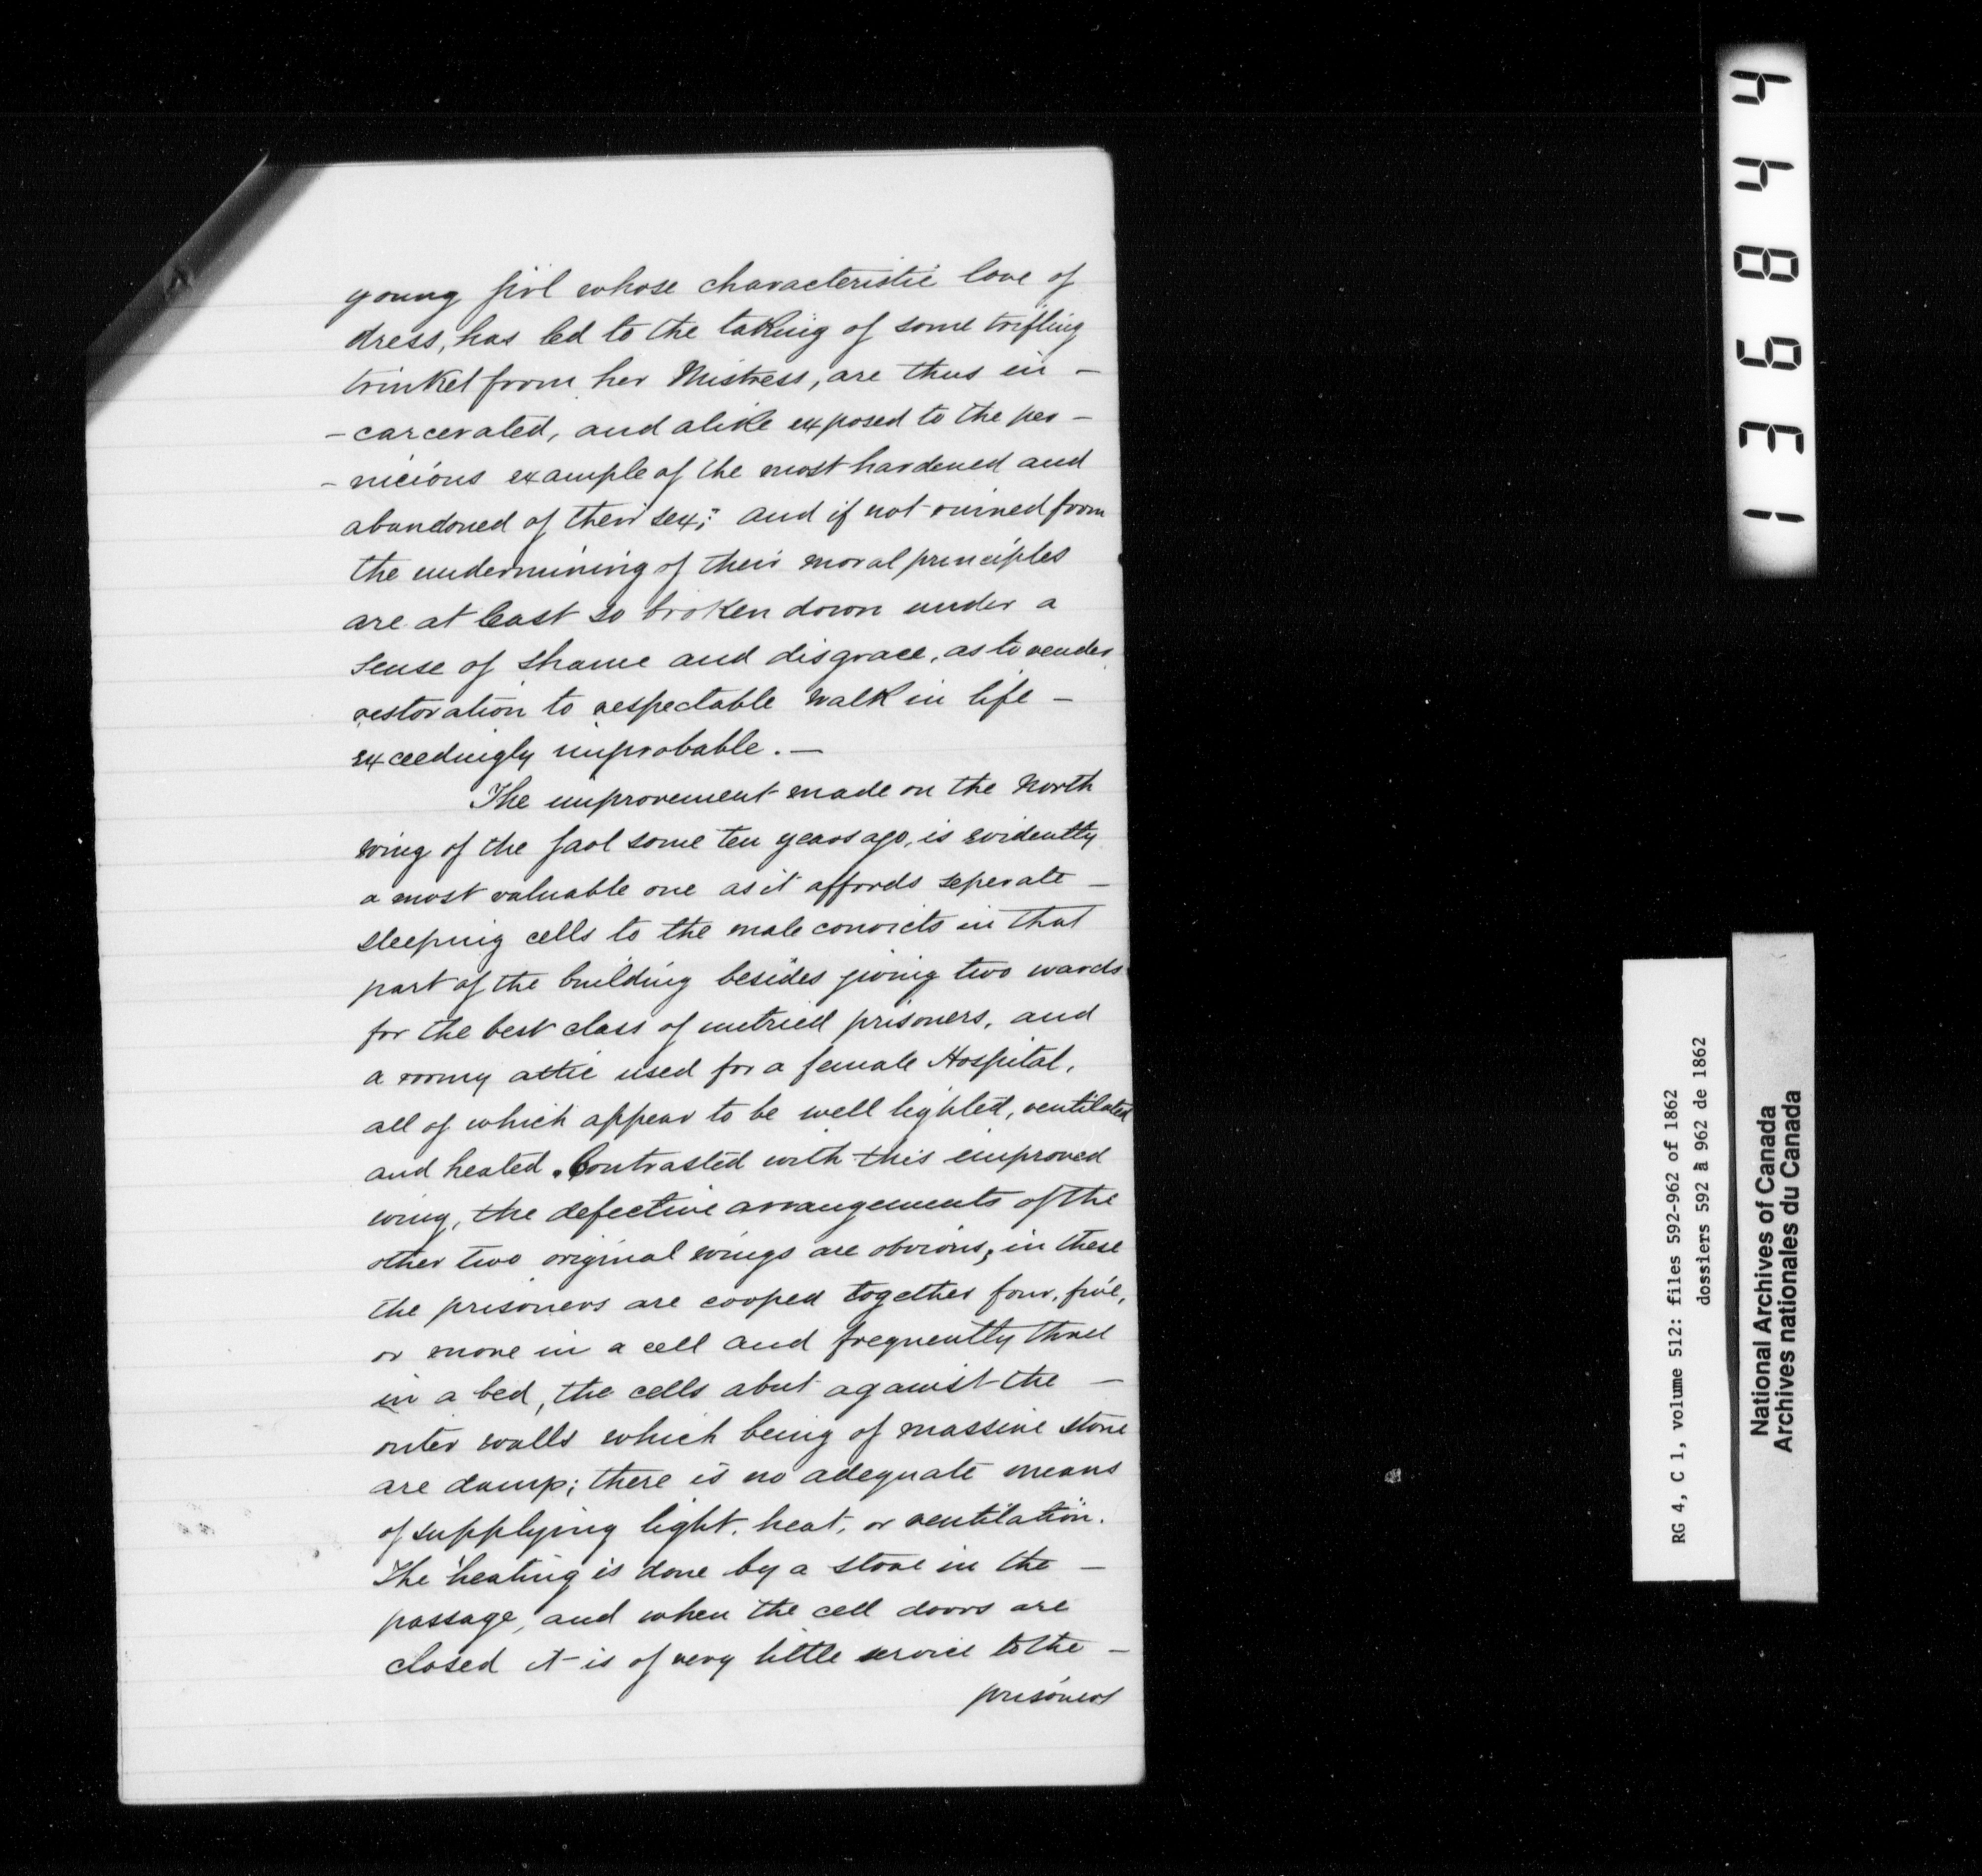 young girl whose characteristic love of
dress, has led to the taking of some trifling
trinket from her Mistress, are thus in -
- carcerated, and alike exposed to the per -
- nicious example of the most hardened and
abandoned of their sex; and if not ruined from
the undermining of their moral principles
are at least so broken down under a
sense of shame and disgrace, as to render
restoration to respectable walk in life -
exceedingly improbable. -
The improvement made on the North
wing of the Gaol some ten years ago, is evidently
a most valuable one as it affords seperate -
sleeping cells to the male convicts in that
part of the building besides giving two wards
for the best class of untried prisoners, and
a roomy attic used for a female Hospital,
all of which appear to be well lighted, ventilated
and heated. Contrasted with this improved
wing, the defective arrangements of the
other two original wings are obvious, in these
the prisoners are cooped together four, five,
or more in a cell and frequently three
in a bed, the cells abut against the -
outer walls which being of massive stone
are damp; there is no adequate means
of supplying light, heat, or ventilation.
The heating is done by a stove in the -
passage, and when the cell doors are
closed it is of very little service to the -
prisoners
136844
RG 4, C 1, volume 512: files 592-962 of 1862
dossiers 592 à 962 de 1862
National Archives of Canada
Archives nationales du Canada